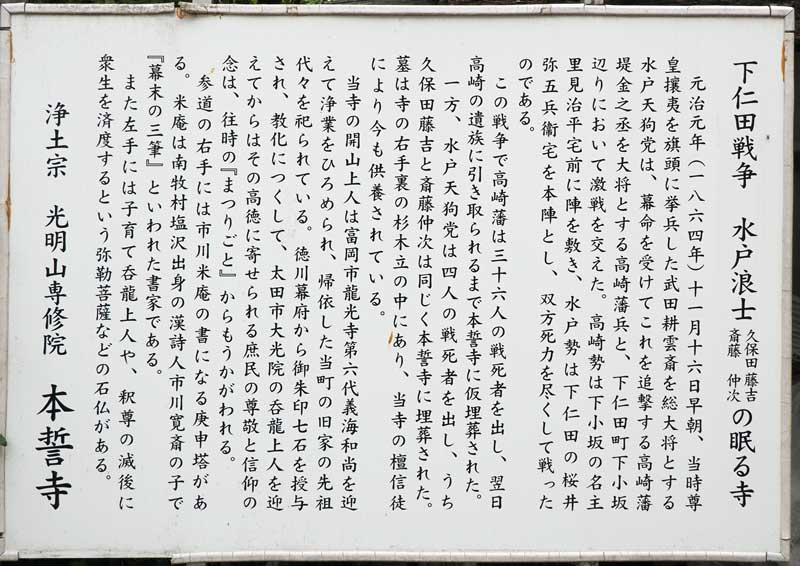 下仁田戦争　水戸浪士 久保田藤吉 斎藤　仲次 の眠る寺
元治元年（一八六四年）十一月十六日早朝、当時尊
皇攘夷を旗頭に挙兵した武田耕雲斎を総大将とする
水戸天狗党は、幕命を受けてこれを追撃する高崎藩
堤金之丞を大将とする高崎藩兵と、下仁田町下小坂
辺りにおいて激戦を交えた。高崎勢は下小坂の名主
里見治平宅前に陣を敷き、水戸勢は下仁田の桜井
弥五兵衞宅を本陣とし、双方死力を尽くして戦った
のである。
この戦争で高崎藩は三十六人の戦死者を出し、翌日
高崎の遺族に引き取られるまで本誓寺に仮埋葬された。
一方、水戸天狗党は四人の戦死者を出し、うち
久保田藤吉と斎藤仲次は同じく本誓寺に埋葬された。
墓は寺の右手裏の杉木立の中にあり、当寺の檀信徒
により今も供養されている。
当寺の開山上人は富岡市龍光寺第六代義海和尚を迎
えて浄業をひろめられ、帰依した当町の旧家の先祖
代々を祀られている。徳川幕府から御朱印七石を授与
され、教化につくして、太田市大光院の呑龍上人を迎
えてからはその高徳に寄せられる庶民の尊敬と信仰の
念は、往時の『まつりごと』からもうかがわれる。
参道の右手には市川米庵の書になる庚申塔があ
る。米庵は南牧村塩沢出身の漢詩人市川寛斎の子で
『幕末の三筆』といわれた書家である。
また左手には子育て呑龍上人や、釈尊の滅後に
衆生を済度するという弥勒菩薩などの石仏がある。
浄土宗　光明山専修院　本誓寺